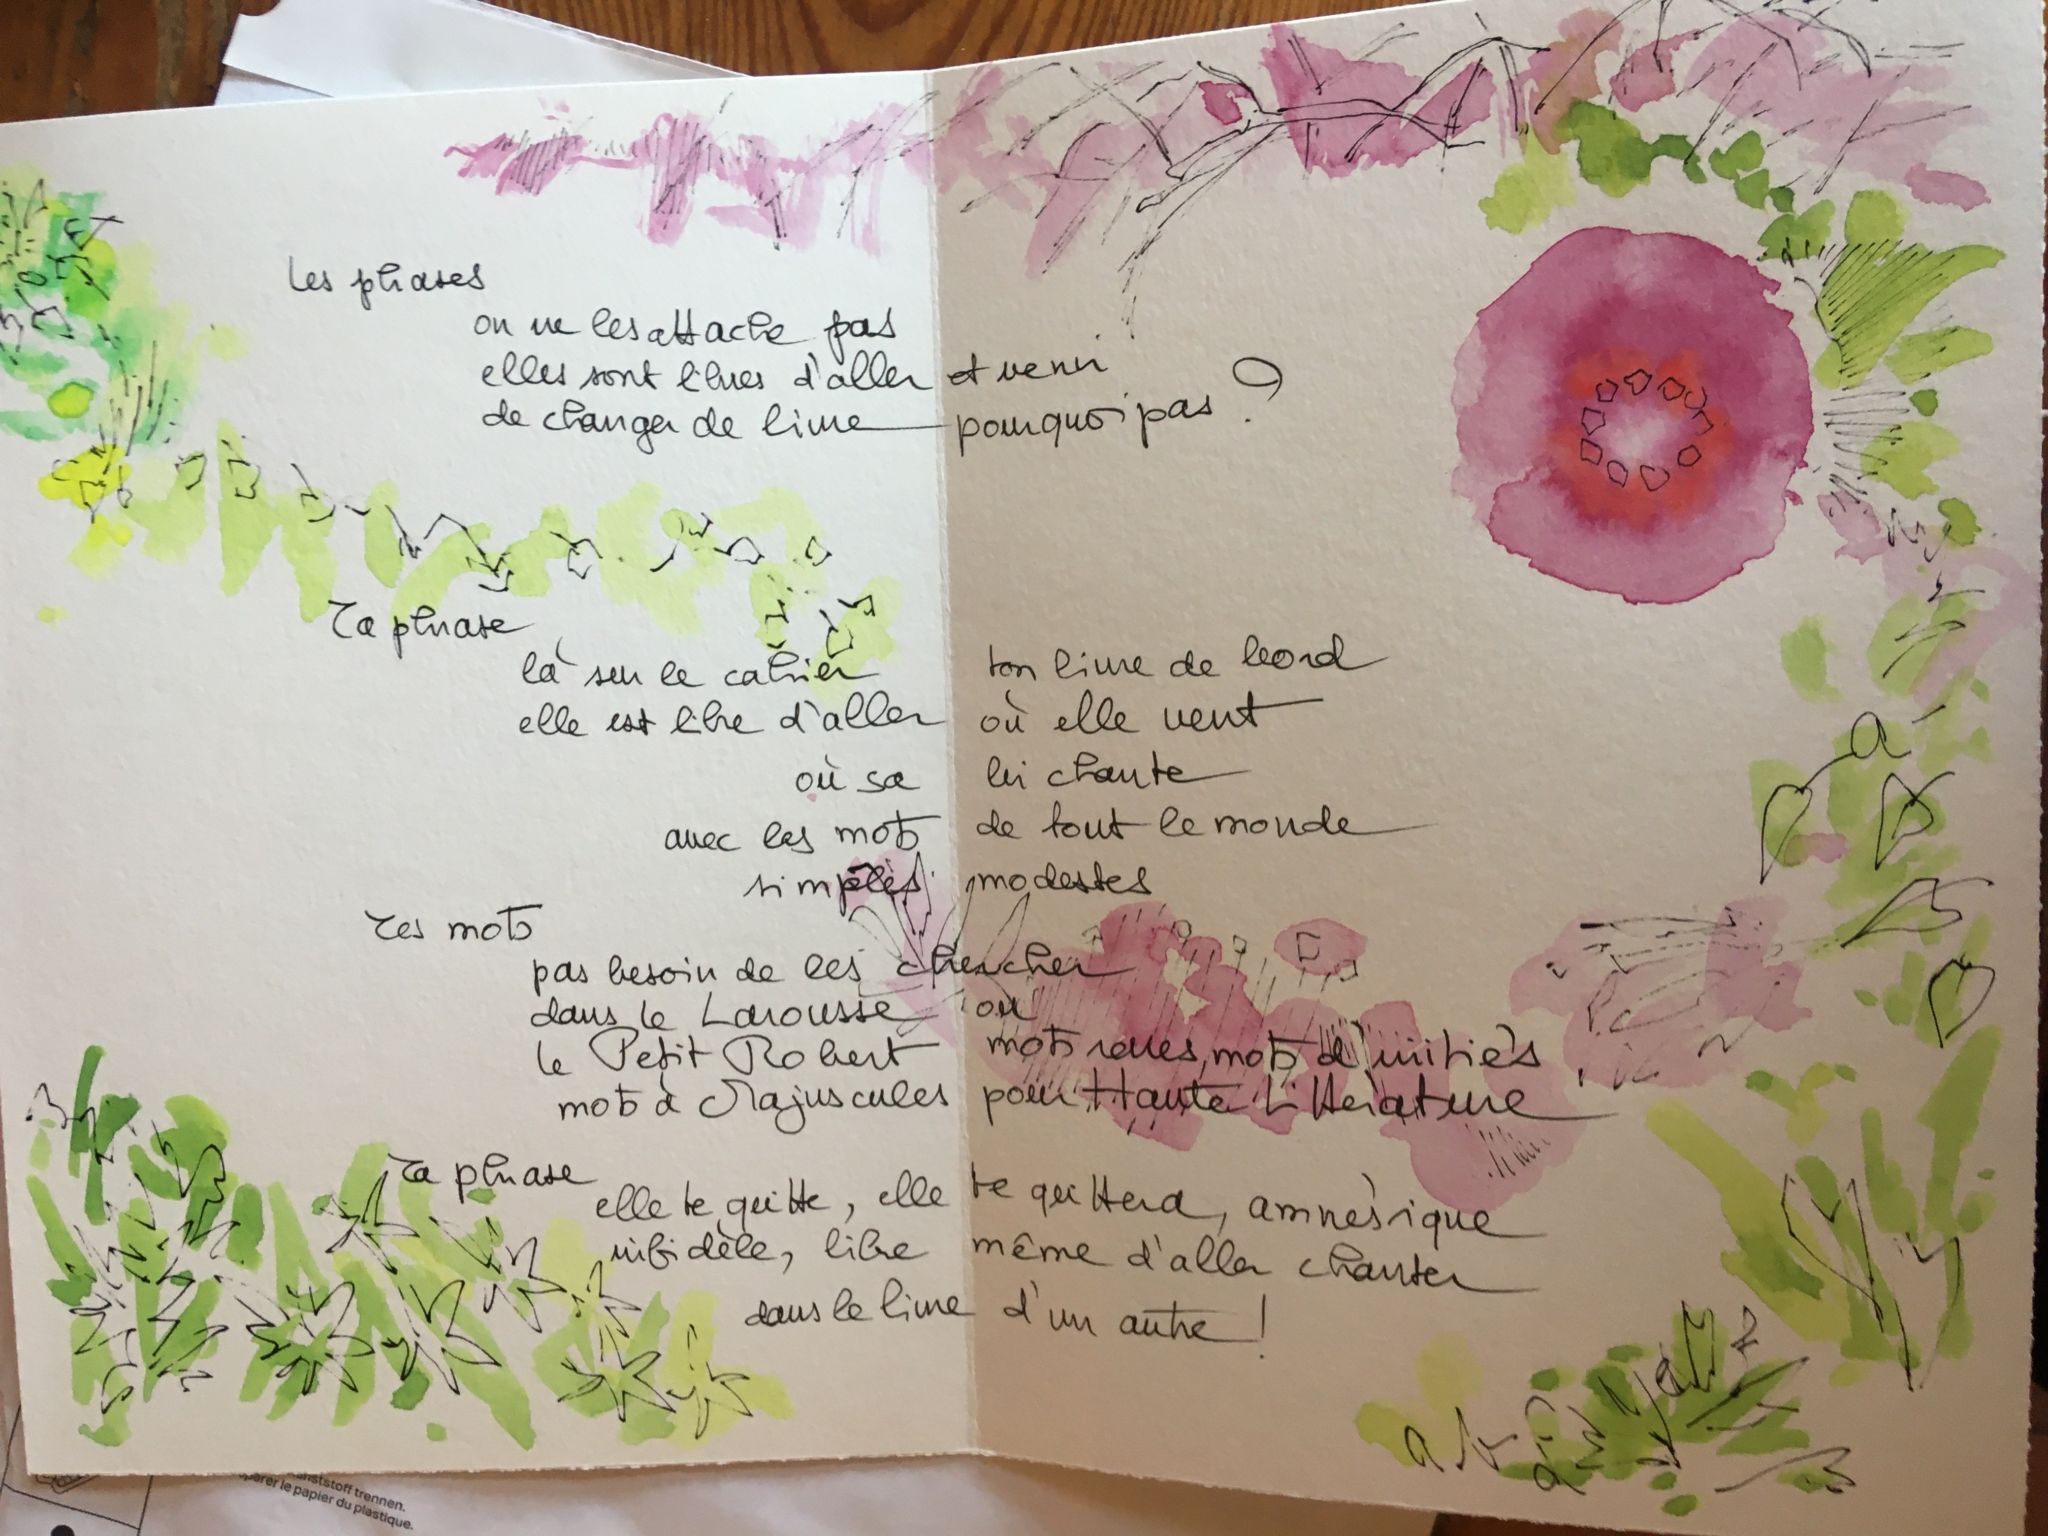 les phrases
on ne les attache pas
elles sont libres d'aller et venir
de changer de livre pourquoi pas ?
Ta phrase
là sur le cahier ton livre de bord
elle est libre d'aller où elle veut
où sa lui chante
avec les mots de tout le monde
simples modestes
Tes mots
pas besoin de les chercher
dans le Larousse ou
le Petit Robert mots rares, mots d'initiés
mots à Majuscules pour Haute Littérature
Ta phrase
elle te quitte, elle te quittera, amnésique
infidèle, libre même d'aller chanter
dans le livre d'un autre !
ststoff trennen.
parer le papier du plastique.